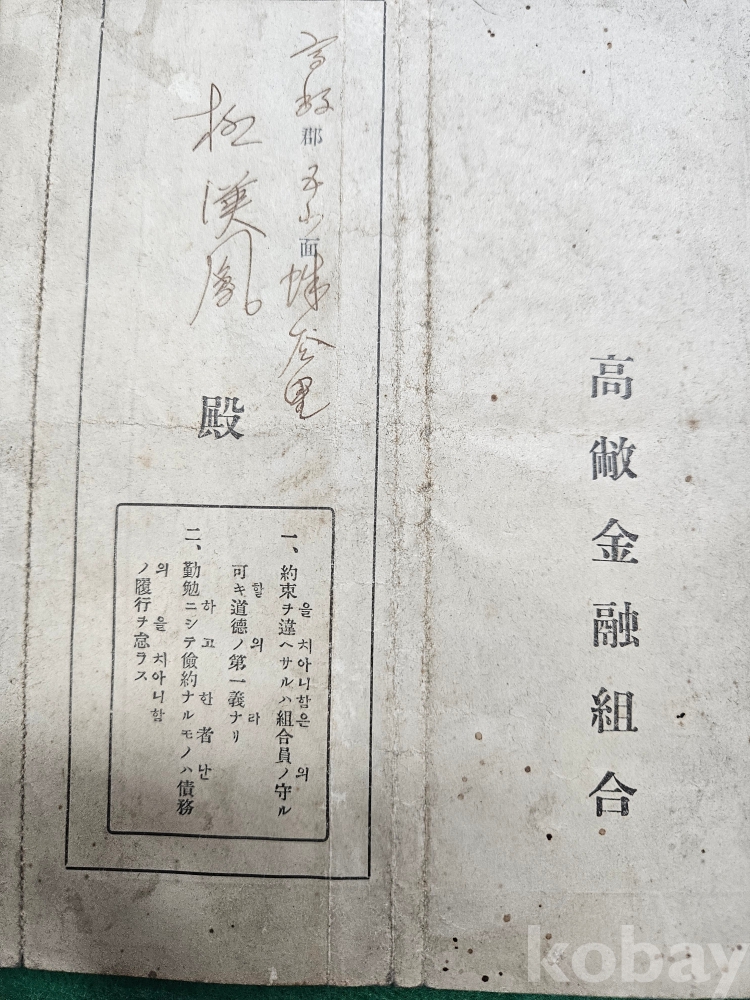 高敞金融組合
高敞郡 五山面 蛛谷里
漢鳳 殿
一、約束ヲ違ヘサルハ組合員ノ守ル
을 치아니함은 의
可キ道德ノ第一義ナリ
할 의 라
二、勤勉ニシテ儉約ナルモノハ債務
하고 한 者 난
ノ履行ヲ怠ラス
의 을 치아니함
kobay